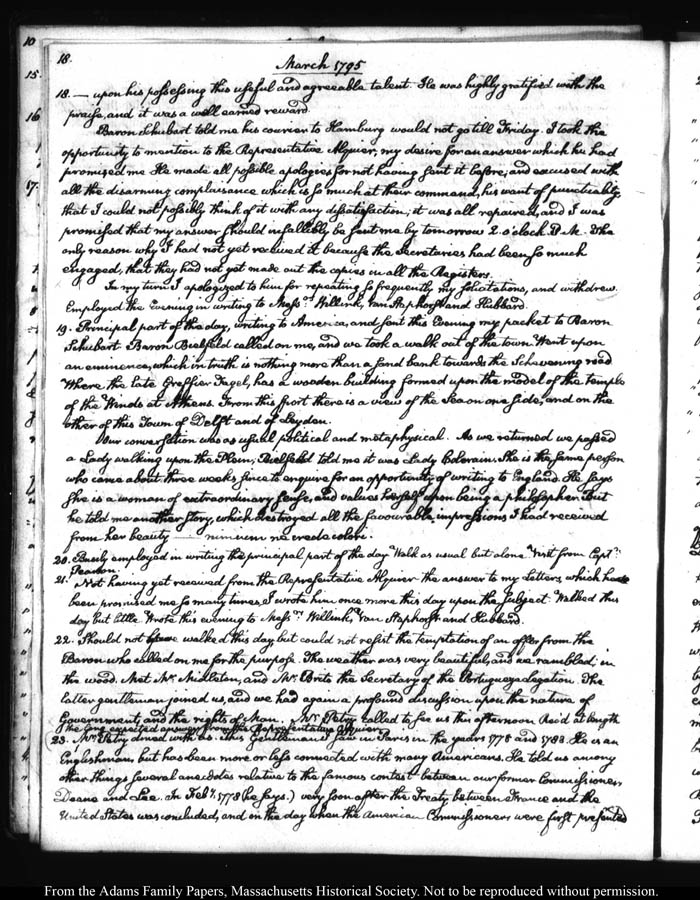 10
15.
16
17.
18.
March 1795
18. — upon his possessing this useful and agreeable talent. He was highly gratified with the
praise, and it was a well earned reward.
Baron Schubart told me his courier to Hamburg would not go till Friday. I took the
opportunity to mention to the Representative Alquier, my desire for an answer which he had
promised me. He made all possible apologies for not having sent it before, and excused with
all the disarming complaisance which is so much at their command, his want of punctuality.
that I could not possibly think of it with any dissatisfaction, it was all repaired, and I was
promised that my answer should infallibly be sent me by tomorrow 2. o'clock P.M. The
only reason why I had not yet received it because the Secretaries had been so much
engaged, that they had not yet made out the copies in all the Registers.
In my turn I apologized to him for repeating so frequently my solicitations, and withdrew.
Employed the Evening in writing to Messrs. Willink, Van Staphorst and Hubbard.
19. Principal part of the day, writing to America, and sent this Evening my packet to Baron
Schubart. Baron Bielfeld called on me, and we took a walk out of the town. Went upon
an eminence, which in truth is nothing more than a sand bank towards the Schevening road
Where the late Greffier Fagel, has a wooden building formed upon the model of the temple
of the Winds at Athens. From this spot there is a view of the Sea on one side, and on the
other of this Town of Delft and of Leyden.
Our conversation was as usual political and metaphysical. As we returned we passed
a Lady walking upon the Plein; Bielfeld told me it was Lady Colerain. She is the same person
who came about three weeks since to enquire for an opportunity of writing to England. He says
she is a woman of extraordinary sense, and values herself upon being a philosopher. But
he told me another story, which destroyed all the favourable impressions I had received
from her beauty — nimium ne crede colori.
20. Busily employed in writing the principal part of the day. Walk as usual but alone. Visit from Captn.
21. Not having yet received from the Representative Alquier the answer to my Letters, which had
been promised me so many times, I wrote him once more this day upon the subject. Walked this
day but little. Wrote this evening to Messrs. Willink, Van Staphorst and Hubbard.
22. Should not have walked this day but could not resist the temptation of an offer from the
Baron who called on me for the purpose. The weather was very beautiful, and we rambled in
the wood. Met Mr. Midleton, and Mr. Brito the Secretary of the Portuguese legation. The
latter gentleman joined us, and we had again a profound discussion upon the nature of
Government, and the rights of Man. Mr. Petry called to see us this afternoon. Rec'd at length
the long expected answer from the Representative Alquier.
23. Mr. Petry dined with us. This Gentleman I saw in Paris in the years 1778 and 1783. He is an
Englishman, but has been more or less connected with many Americans. He told us among
other things several anecdotes relative to the famous contest between our former Commissioners
Deane and Lee. In Feby. 1778 (he says.) very soon after the Treaty between France and the
United States was concluded, and on the day when the American Commissioners were first presented
From the Adams Family Papers, Massachusetts Historical Society. Not to be reproduced without permission.